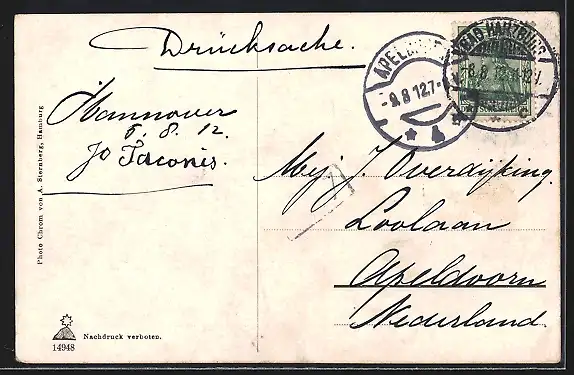 Drücksache.
Hannover
5. 8. 12.
Jo Taconis.
Mej. J. Overdijking.
Loolaan
Apeldoorn
Nederland.
BAD HARZBURG
8.8.12
c
APELDOORN
-9.8 12.7-
4
Photo Chrom von A. Sternberg, Hamburg
14948
Nachdruck verboten.